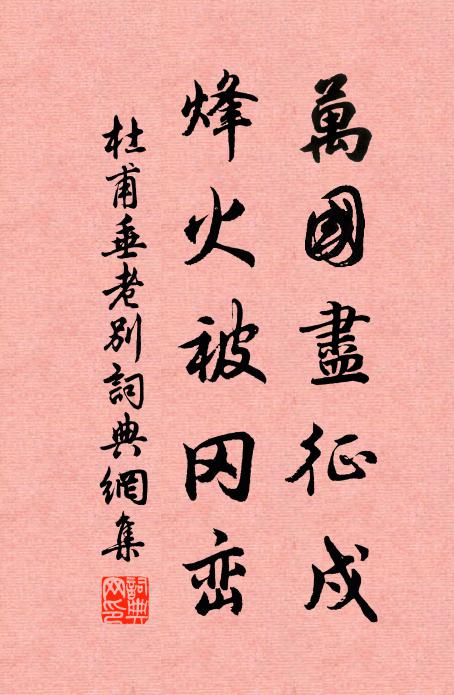 萬國盡征戍
烽火被冈峦
杜甫垂老別詞典網集
詞典網印